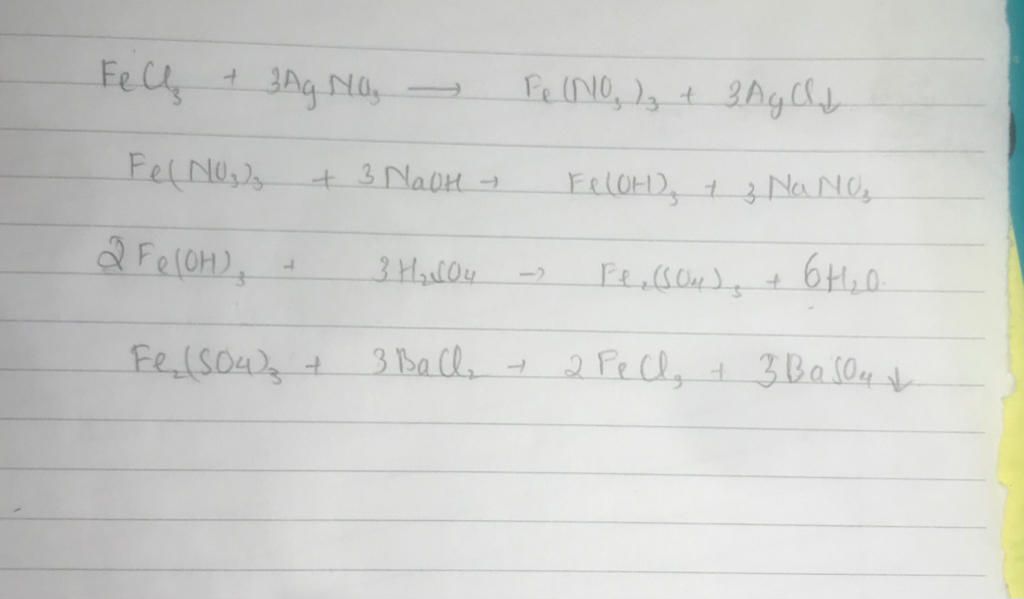 FeCl₃ + 3AgNO₃ → Fe(NO₃)₃ + 3AgCl↓
Fe(NO₃)₃ + 3NaOH → Fe(OH)₃ + 3NaNO₃
2Fe(OH)₃ + 3H₂SO₄ → Fe₂(SO₄)₃ + 6H₂O
Fe₂(SO₄)₃ + 3BaCl₂ → 2FeCl₃ + 3BaSO₄↓